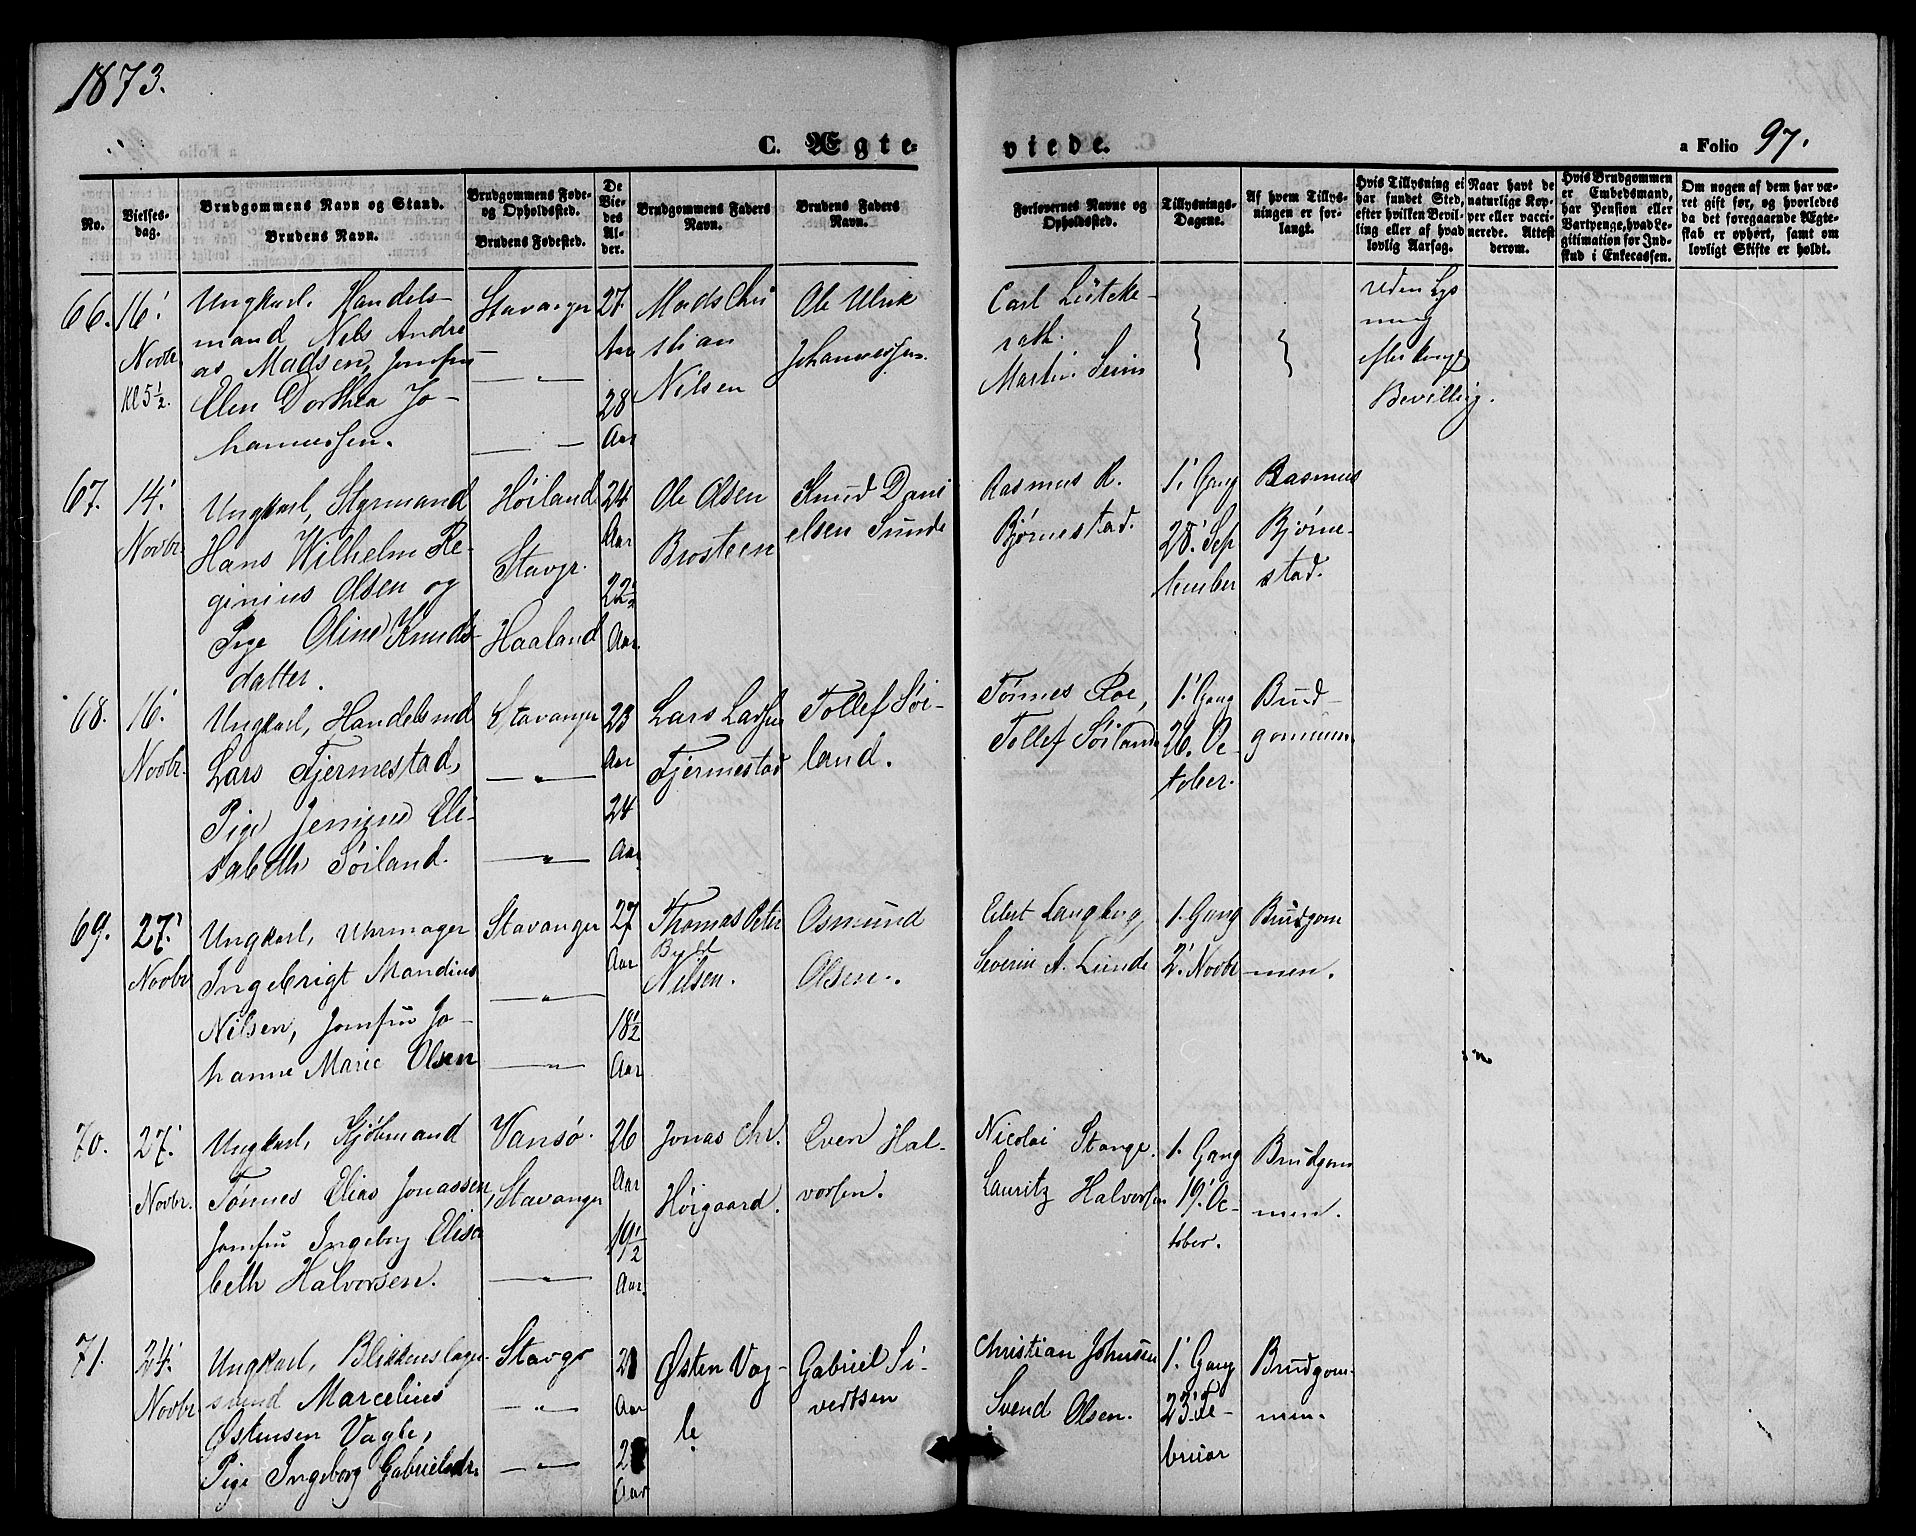 1873.
C. Ægte-
viede.
a Folio 97.
No.
Vielses-
dag.
Brudgommens Navn og Stand.
Brudens Navn.
Brudgommens Føde-
og Opholdssted.
Brudens Fødested.
De
Vie-
des
Al-
der.
Brudgommens Faders
Navn.
Brudens Faders
Navn.
Forlovernes Navne og
Opholdssted.
Tillysnings-
Dagene.
Af hvem Tillys-
ningen er for-
langt.
Hvis Tillysning ei
har fundet Sted,
efter hvilken Bevil-
ling eller af hvad
lovlig Aarsag.
Naar havt de
naturlige Kop-
per eller vacci-
nerede. Attest
derom.
Hvis Brudgommen
er Embedsmand,
har Pension eller
Vartpenge, hvad Le-
gitimation for Ind-
skud i Enkecassen.
Om nogen af dem har væ-
ret gift før, og hvorledes
da det foregaaende Ægte-
skab er ophørt, samt om
lovligt Skifte er holdt.
66.
16'
Novbr
Kl 5½.
Ungkarl. Handels-
mand Nels Andre
as Madsen, Jomfru
Elen Dorthea Jo-
hannessen.
Stavanger
— „ —
27
Aar
28
Aar
Mads Chri
stian
Nilsen
Ole Ulrik
Johannessen.
Carl Lütcke-
rath.
Martin Seim
uden Lys
ning
efter kongel
Bevilling.
67.
14'
Novbr.
Ungkarl, Styrmand
Hans Wilhelm Re-
ginius Olsen og
Pige Oline Knuds-
datter.
Høiland
Stavgr.
Haaland
24
Aar
22½
Aar.
Ole Olsen
Brosteen
Knud Dani
elsen Sunde
Rasmus R.
Bjørnestad.
1' Gang
28. Sep
tember
Rasmus
Bjørne-
stad.
68.
16'
Novbr.
Ungkarl, Handelsmd
Lars Tjermestad,
Pige Jemine Eli-
sabeth Søiland.
Stavanger
— „ —
— „ —
23
Aar
24
Aar
Lars Larsen
Tjermestad
Tollef Søi-
land.
Tønnes Roe,
Tollef Søiland
1' Gang
26. Oc-
tober.
Brud-
gommen
69.
27'
Novbr
Ungkarl, Uhrmager
Ingebrigt Mandius
Nilsen, Jomfru Jo-
hanne Marie Olsen
Stavanger
— „ —
— „ —
27
Aar
18½
Aar
Thomas Peter
Nilsen.
Osmund
Olsen.
Langberg,
Severin A. Lunde
1. Gang
2' Novbr
Brudgom
men.
70.
27'
Novbr.
Ungkarl, Kjøbmand
Tønnes Elias Jonassen,
Jomfru Ingeborg Elisa
beth Halvorsen.
Vansø.
Stavanger
— „ —
26
Aar
19½
Aar.
Jonas Chr.
Høigaard.
Even Hal-
vorsen.
Nicolai Stange.
Lauritz Halvorsen
1. Gang
19' Oc-
tober.
Brudgom
men.
71.
24'
Novbr
Ungkarl, Blikkenslager-
svend Marcelius
Østensen Vagle,
Pige Ingeborg Gabrielsdr.
Stavgr
— „ —
— „ —
Aar
Aar
Østen Vag-
le
Gabriel Si-
vertsen
Christian Johnsen
Svend Olsen.
1' Gang
23' Fe-
bruar
Brudgom-
men.